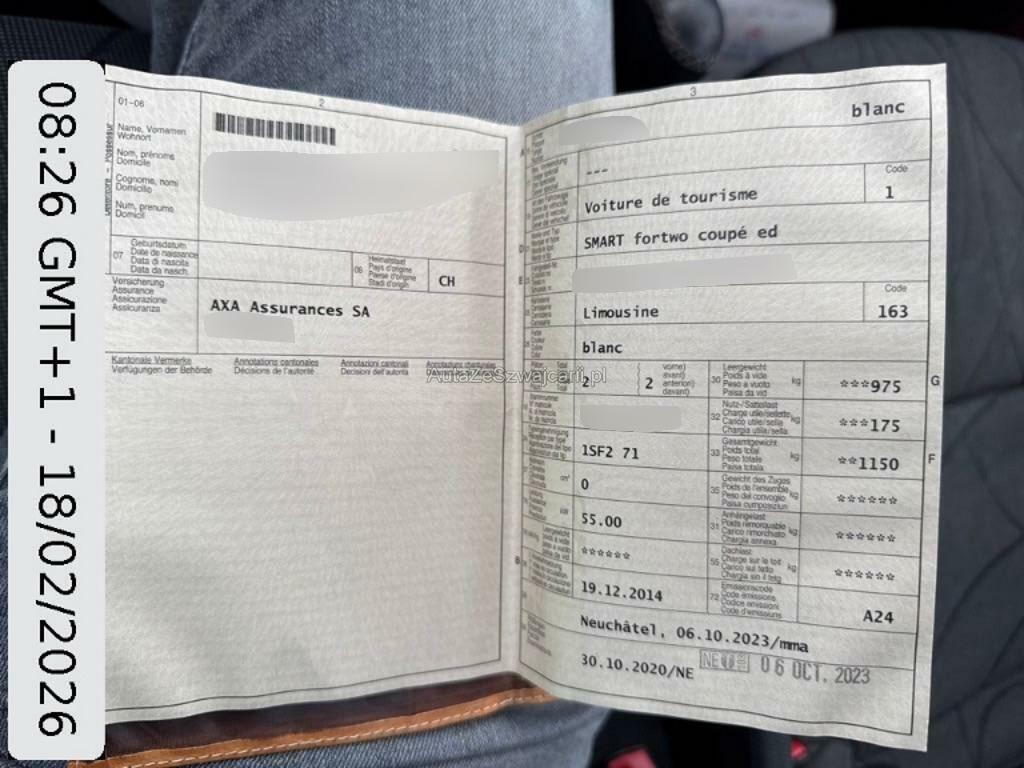 08:26 GMT+1 - 18/02/2026
2
01-06
Name, Vornamen
Wohnort
Nom, prénoms
Domicile
Cognome, nomi
Domicilio
Num, prenums
Domicil
07
Geburtsdatum
Date de naissance
Data di nascita
Data da nasch.
06
Heimatstaat
Pays d'origine
Paese d'origine
Stadi d'origin
CH
Versicherung
Assurance
Assicurazione
Assicuranza
AXA Assurances SA
Kantonale Vermerke
Verfügungen der Behörde
Annotations cantonales
Décisions de l'autorité
Annotazioni cantonali
Decisioni dell'autorità
AutaZeSzwajcarii.pl
3
blanc
A
---
Code
1
Voiture de tourisme
D
SMART fortwo coupé ed
E
Code
Limousine
163
blanc
2
2
vorne)
avant)
anteriori)
davant)
30
Leergewicht
Poids à vide
Peso a vuoto
Paisa da vid
kg
***975
G
32
Nutz-/Sattellast
Charge utile/sellette
Carico utile/sella
Chargia utila/sella
kg
***175
1SF2 71
33
Gesamtgewicht
Poids total
Peso totale
Paisa totala
kg
**1150
F
cm³
0
35
Gewicht des Zuges
Poids de l'ensemble
Peso del convoglio
Paisa cumposiziun
kg
******
kW
55.00
31
Anhängelast
Poids remorquable
Carico rimorchiato
Chargia annexa
kg
******
******
55
Dachlast
Charge sur le toit
Carico sul tetto
Chargia sin il tetg
kg
******
B
19.12.2014
72
Emissionscode
Code émissions
Codice emissioni
Code d'emissiuns
A24
Neuchâtel, 06.10.2023/mma
30.10.2020/NE
NE
06 OCT. 2023